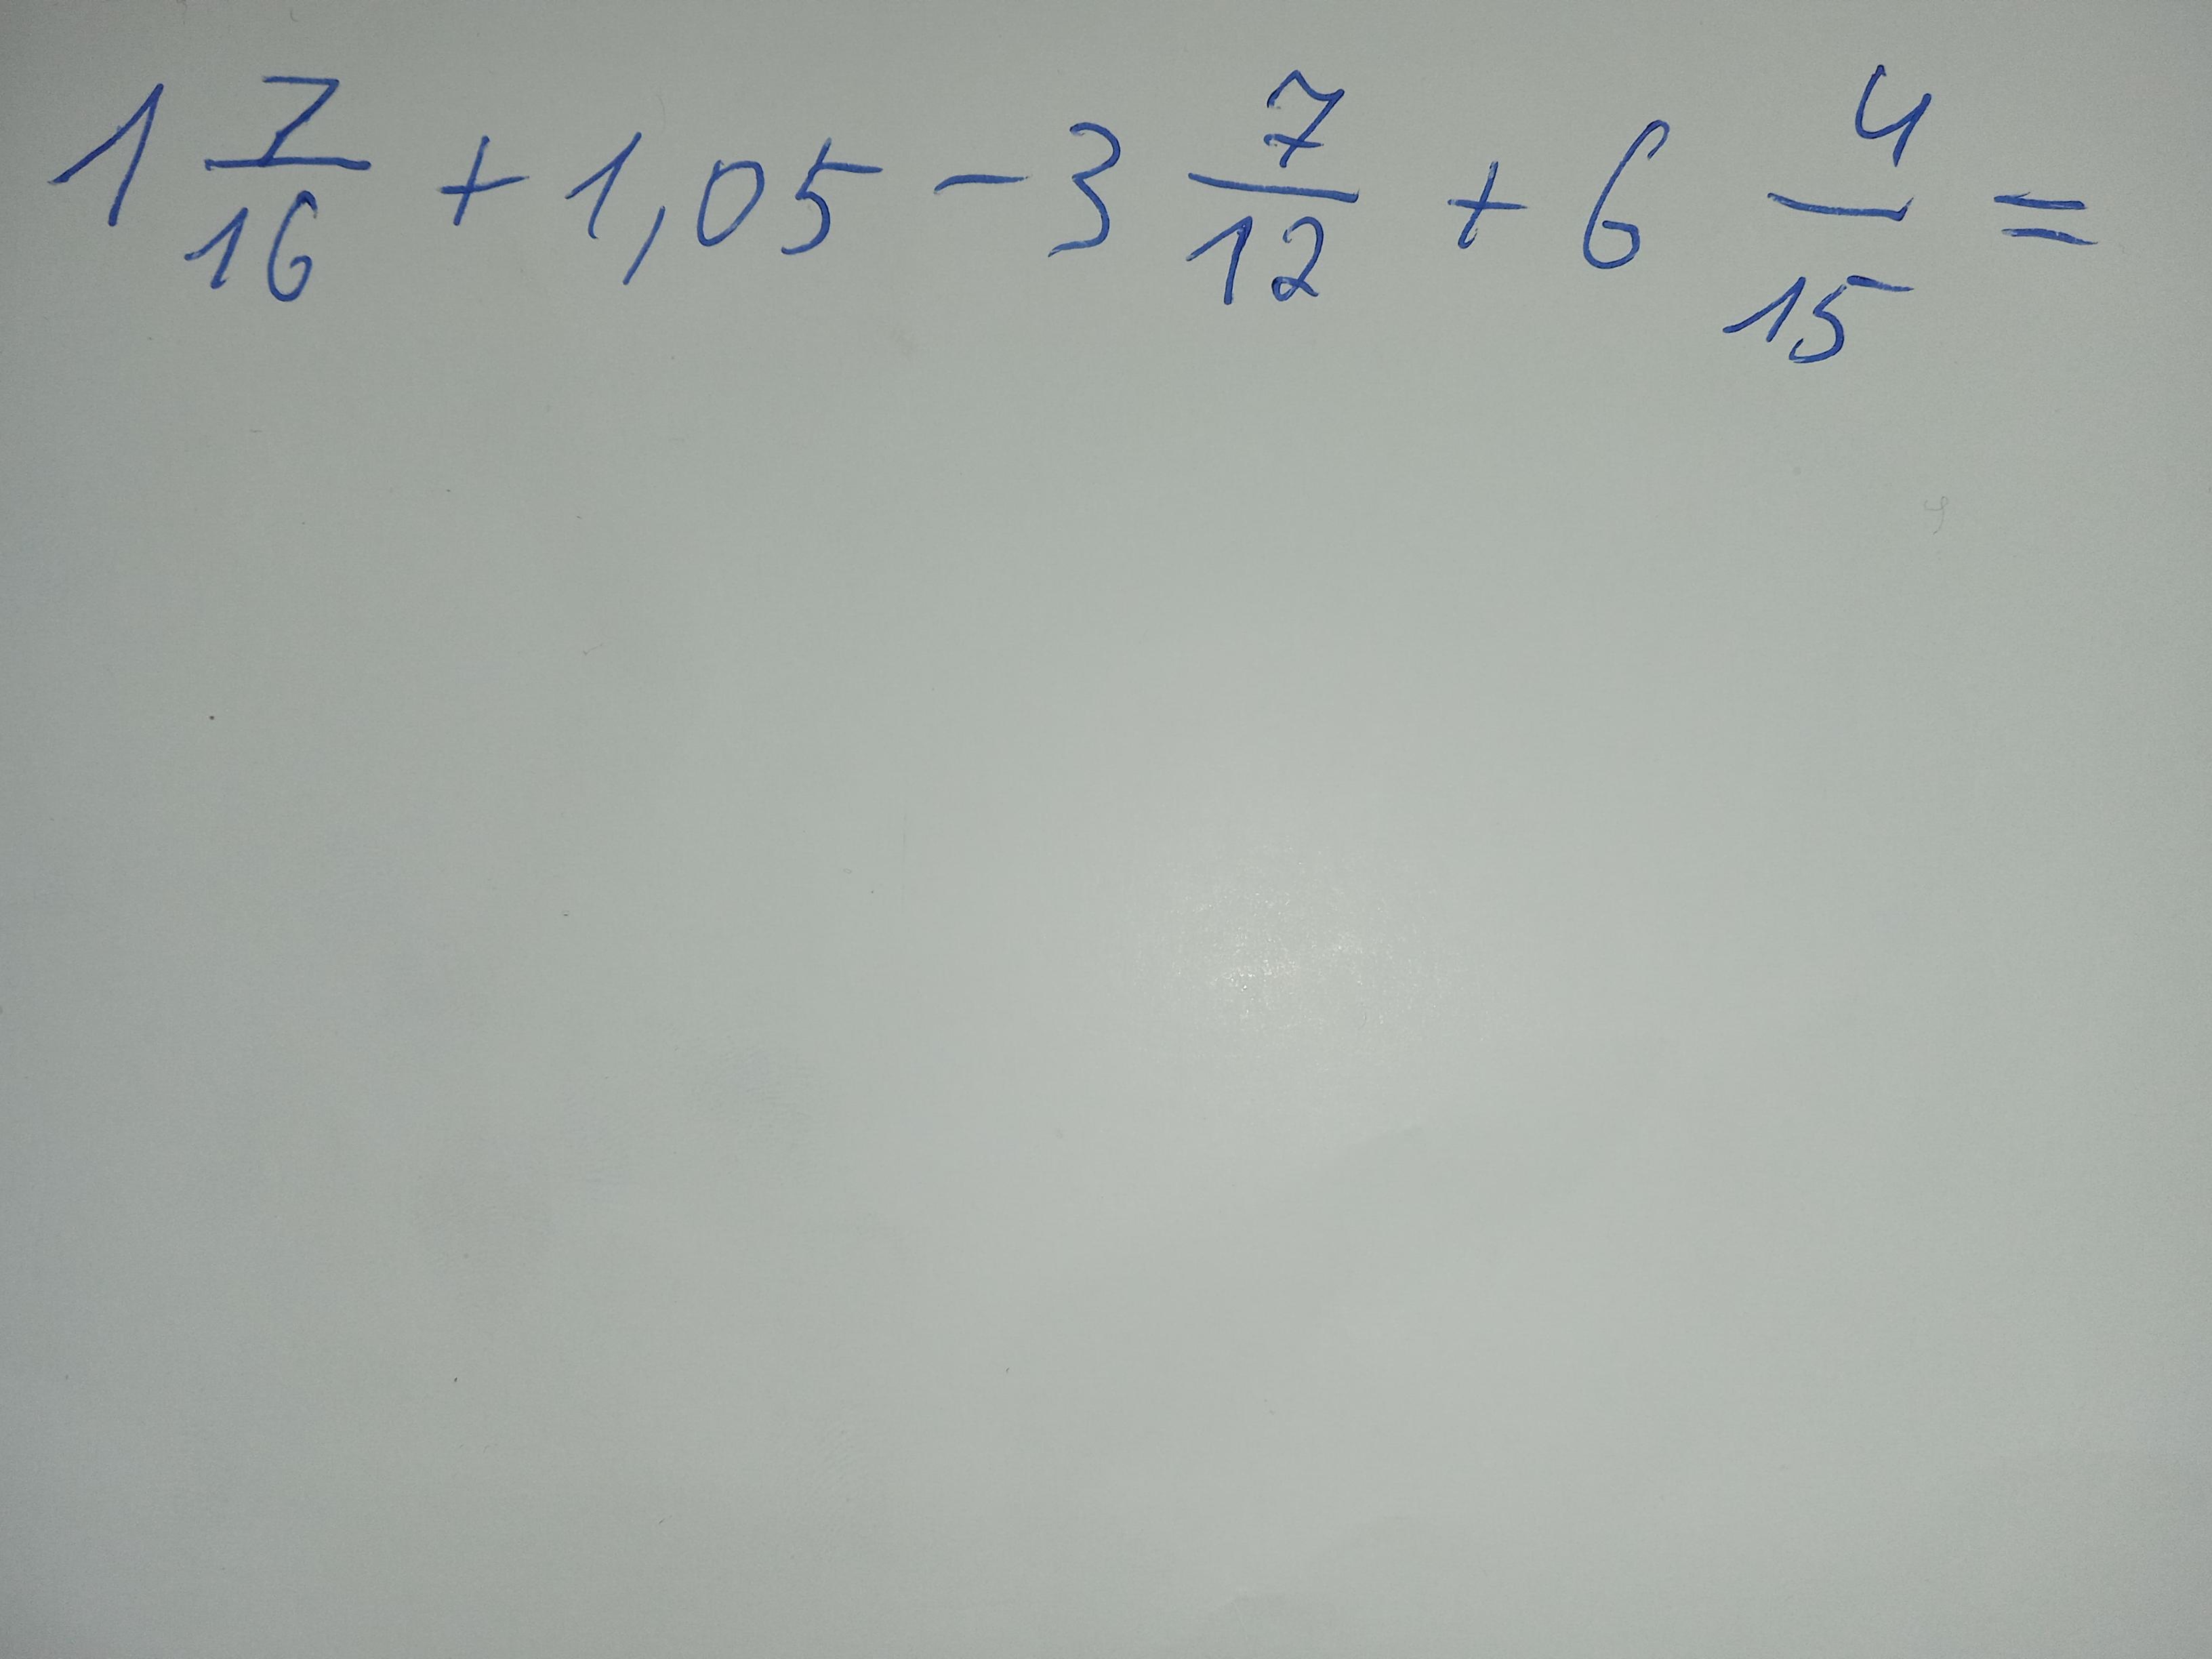 1 7/16 + 1,05 - 3 7/12 + 6 4/15 =